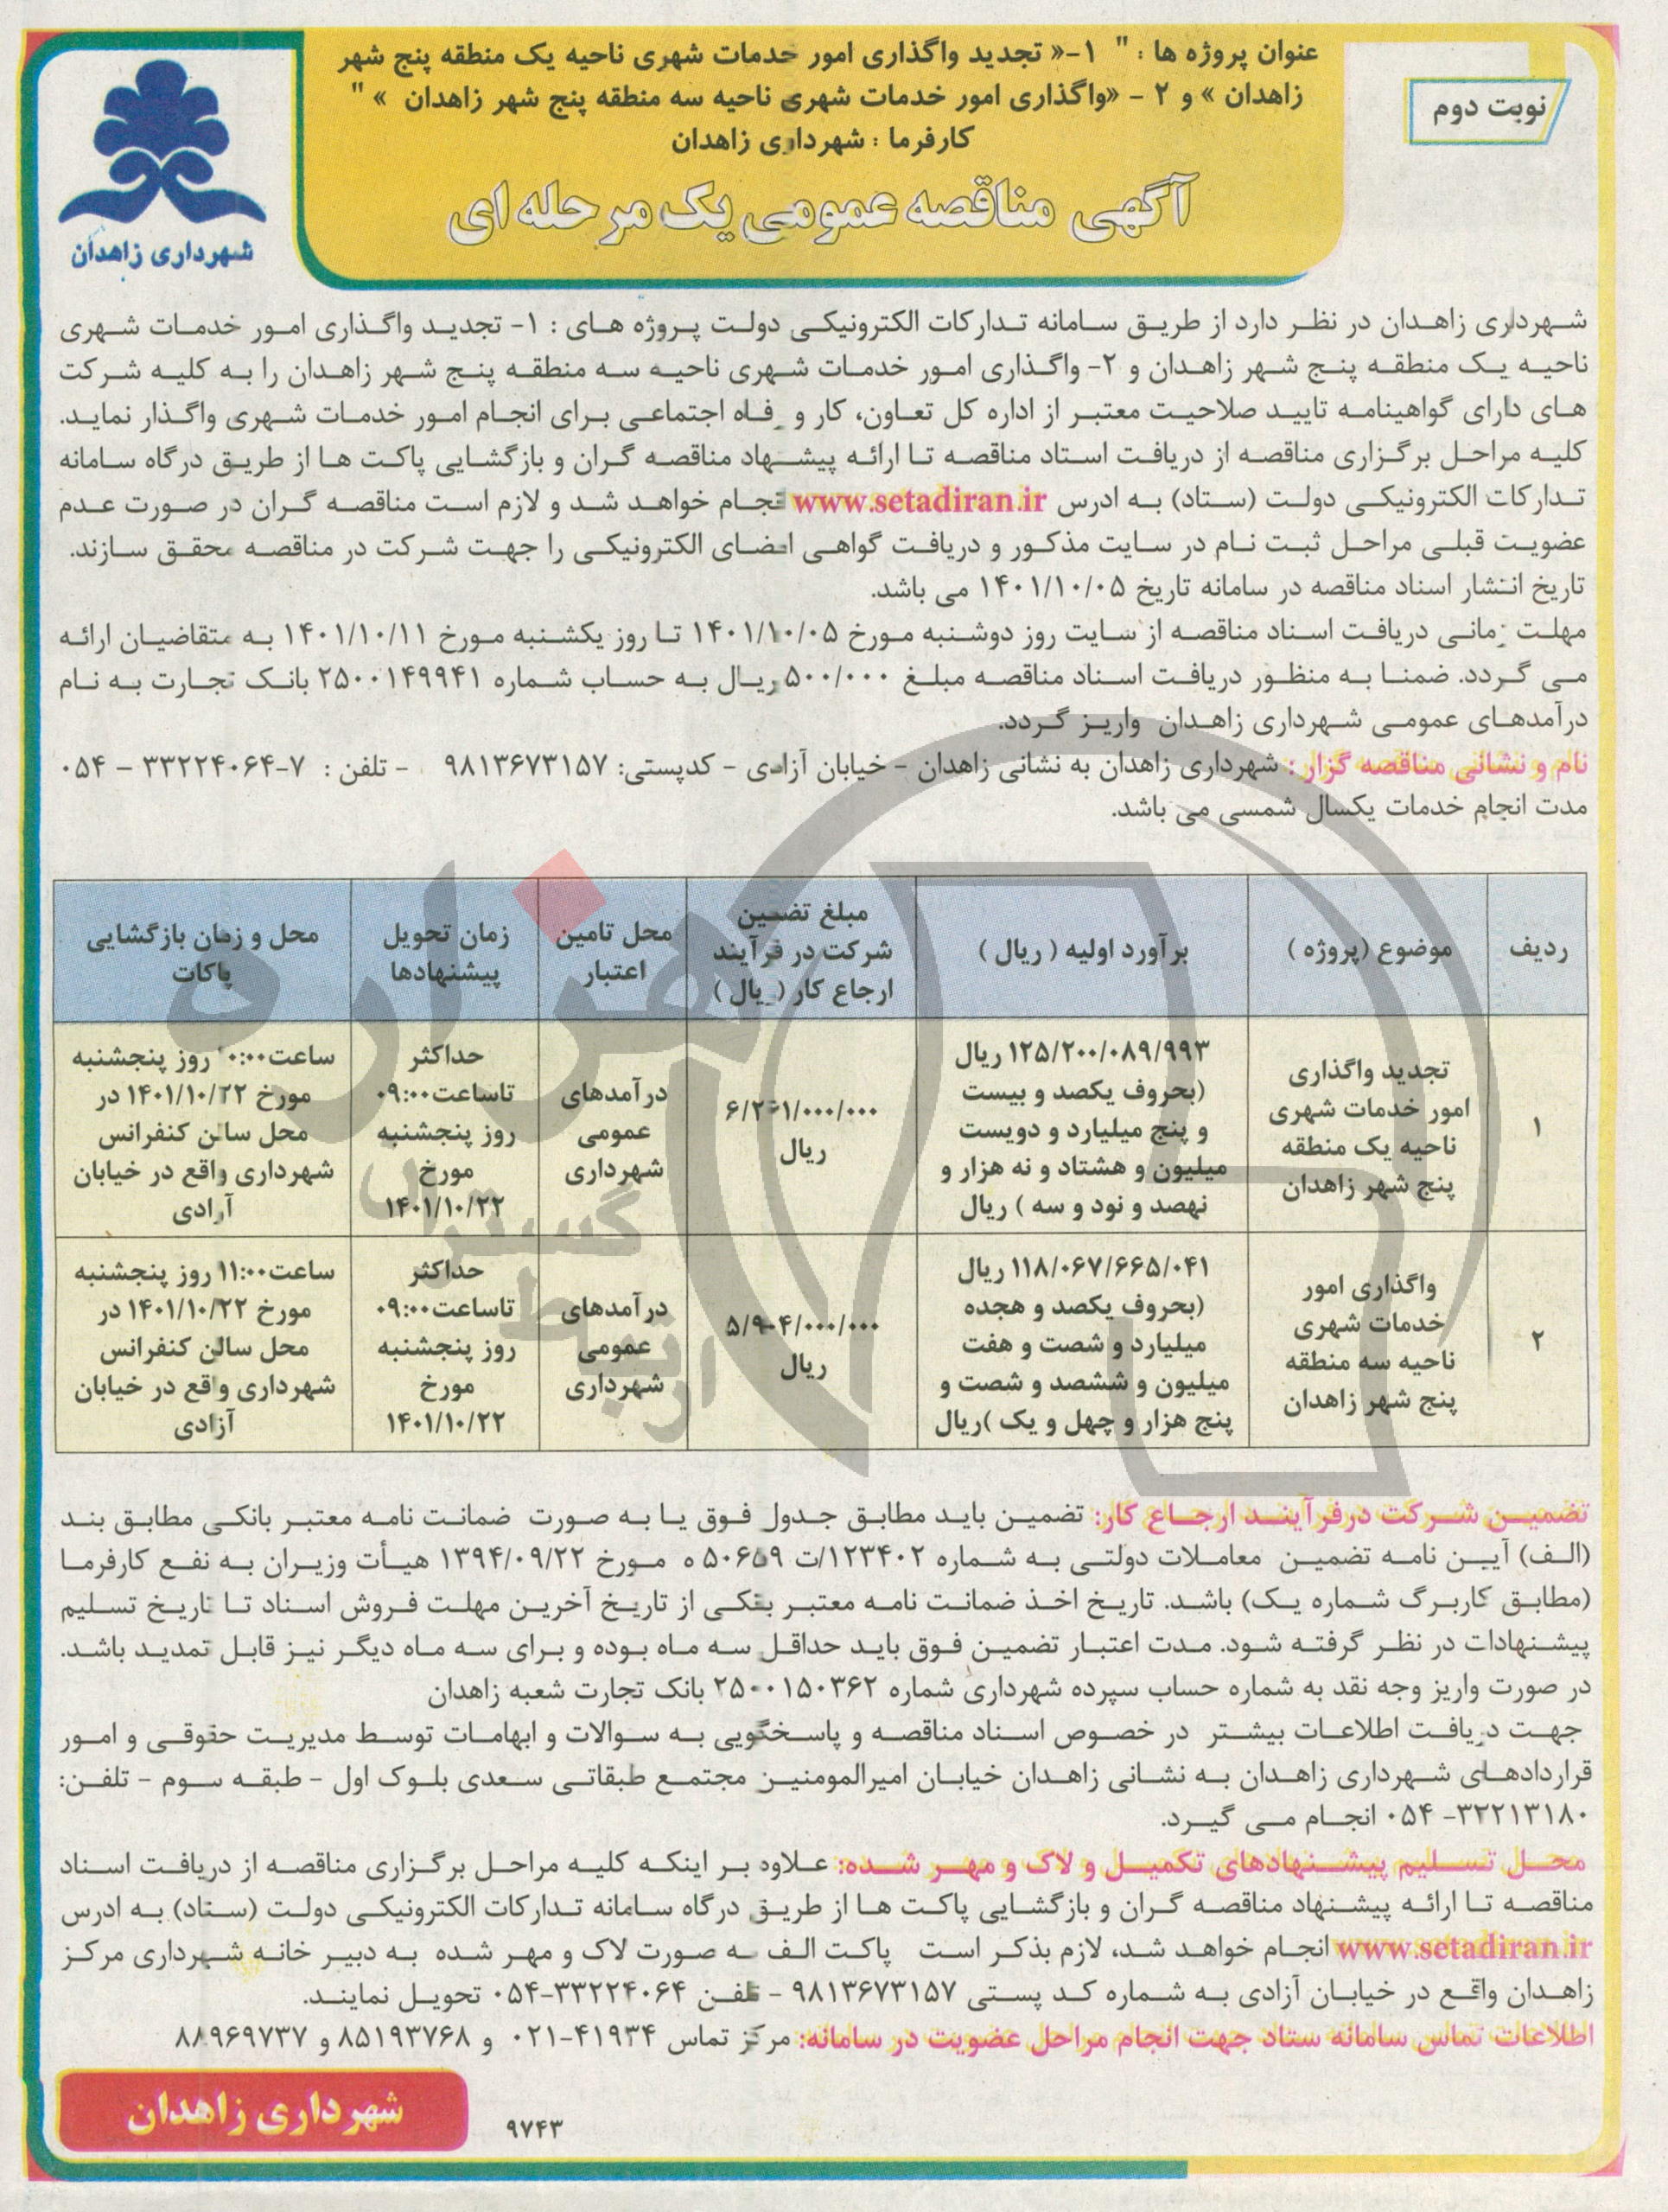 نوبت دوم
عنوان پروژه ها : " ۱-« تجدید واگذاری امور خدمات شهری ناحیه یک منطقه پنج شهر
زاهدان » و ۲ - «واگذاری امور خدمات شهری ناحیه سه منطقه پنج شهر زاهدان » "
کارفرما : شهرداری زاهدان
آگهی مناقصه عمومی یک مرحله ای
شهرداری زاهدان
شهرداری زاهدان در نظر دارد از طریق سامانه تدارکات الکترونیکی دولت پروژه های : ۱- تجدید واگذاری امور خدمات شهری
ناحیه یک منطقه پنج شهر زاهدان و ۲- واگذاری امور خدمات شهری ناحیه سه منطقه پنج شهر زاهدان را به کلیه شرکت
های دارای گواهینامه تایید صلاحیت معتبر از اداره کل تعاون، کار و رفاه اجتماعی برای انجام امور خدمات شهری واگذار نماید.
کلیه مراحل برگزاری مناقصه از دریافت استاد مناقصه تا ارائه پیشنهاد مناقصه گران و بازگشایی پاکت ها از طریق درگاه سامانه
تدارکات الکترونیکی دولت (ستاد) به ادرس www.setadiran.ir انجام خواهد شد و لازم است مناقصه گران در صورت عدم
عضویت قبلی مراحل ثبت نام در سایت مذکور و دریافت گواهی امضای الکترونیکی را جهت شرکت در مناقصه محقق سازند.
تاریخ انتشار اسناد مناقصه در سامانه تاریخ ۱۴۰۱/۱۰/۰۵ می باشد.
مهلت زمانی دریافت اسناد مناقصه از سایت روز دوشنبه مورخ ۱۴۰۱/۱۰/۰۵ تا روز یکشنبه مورخ ۱۴۰۱/۱۰/۱۱ به متقاضیان ارائه
می گردد. ضمنا به منظور دریافت اسناد مناقصه مبلغ ۵۰۰/۰۰۰ ریال به حساب شماره ۲۵۰۰۱۴۹۹۴۱ بانک تجارت به نام
درآمدهای عمومی شهرداری زاهدان واریز گردد.
نام و نشانی مناقصه گزار : شهرداری زاهدان به نشانی زاهدان - خیابان آزادی - کدپستی: ۹۸۱۳۶۷۳۱۵۷ - تلفن : ۷-۳۳۲۲۴۰۶۴ - ۰۵۴
مدت انجام خدمات یکسال شمسی می باشد.
ردیف
موضوع (پروژه )
برآورد اولیه ( ریال )
مبلغ تضمین
شرکت در فرآیند
ارجاع کار ( ریال )
محل تامین
اعتبار
زمان تحویل
پیشنهادها
محل و زمان بازگشایی
پاکات
۱
تجدید واگذاری
امور خدمات شهری
ناحیه یک منطقه
پنج شهر زاهدان
۱۲۵/۲۰۰/۰۸۹/۹۹۳ ریال
(بحروف یکصد و بیست
و پنج میلیارد و دویست
میلیون و هشتاد و نه هزار و
نهصد و نود و سه ) ریال
ریال
درآمدهای
عمومی
شهرداری
حداکثر
تاساعت۰۹:۰۰
روز پنجشنبه
مورخ
۱۴۰۱/۱۰/۲۲
ساعت۱۰:۰۰ روز پنجشنبه
مورخ ۱۴۰۱/۱۰/۲۲ در
محل سالن کنفرانس
شهرداری واقع در خیابان
آزادی
۲
واگذاری امور
خدمات شهری
ناحیه سه منطقه
پنج شهر زاهدان
۱۱۸/۰۶۷/۶۶۵/۰۴۱ ریال
(بحروف یکصد و هجده
میلیارد و شصت و هفت
میلیون و ششصد و شصت و
پنج هزار و چهل و یک )ریال
۵/۹۰۴/۰۰۰/۰۰۰
ریال
درآمدهای
عمومی
شهرداری
حداکثر
تاساعت۰۹:۰۰
روز پنجشنبه
مورخ
۱۴۰۱/۱۰/۲۲
ساعت۱۱:۰۰ روز پنجشنبه
مورخ ۱۴۰۱/۱۰/۲۲ در
محل سالن کنفرانس
شهرداری واقع در خیابان
آزادی
تضمین شرکت درفرآیند ارجاع کار: تضمین باید مطابق جدول فوق یا به صورت ضمانت نامه معتبر بانکی مطابق بند
(الف) آیین نامه تضمین معاملات دولتی به شماره ۱۲۳۴۰۲/ت ۵۰۶۵۹ ه مورخ ۱۳۹۴/۰۹/۲۲ هیأت وزیران به نفع کارفرما
(مطابق کاربرگ شماره یک) باشد. تاریخ اخذ ضمانت نامه معتبر بانکی از تاریخ آخرین مهلت فروش اسناد تا تاریخ تسلیم
پیشنهادات در نظر گرفته شود. مدت اعتبار تضمین فوق باید حداقل سه ماه بوده و برای سه ماه دیگر نیز قابل تمدید باشد.
در صورت واریز وجه نقد به شماره حساب سپرده شهرداری شماره ۲۵۰۰۱۵۰۳۶۲ بانک تجارت شعبه زاهدان
جهت دریافت اطلاعات بیشتر در خصوص اسناد مناقصه و پاسخگویی به سوالات و ابهامات توسط مدیریت حقوقی و امور
قراردادهای شهرداری زاهدان به نشانی زاهدان خیابان امیرالمومنین مجتمع طبقاتی سعدی بلوک اول - طبقه سوم - تلفن:
۳۲۲۱۳۱۸۰- ۰۵۴ انجام می گیرد.
محل تسلیم پیشنهادهای تکمیل و لاک و مهر شده: علاوه بر اینکه کلیه مراحل برگزاری مناقصه از دریافت اسناد
مناقصه تا ارائه پیشنهاد مناقصه گران و بازگشایی پاکت ها از طریق درگاه سامانه تدارکات الکترونیکی دولت (ستاد) به ادرس
www.setadiran.ir انجام خواهد شد، لازم بذکر است پاکت الف به صورت لاک و مهر شده به دبیر خانه شهرداری مرکز
زاهدان واقع در خیابان آزادی به شماره کد پستی ۹۸۱۳۶۷۳۱۵۷ - تلفن ۳۳۲۲۴۰۶۴-۰۵۴ تحویل نمایند.
اطلاعات تماس سامانه ستاد جهت انجام مراحل عضویت در سامانه: مرکز تماس ۴۱۹۳۴-۰۲۱ و ۸۵۱۹۳۷۶۸ و ۸۸۹۶۹۷۳۷
۹۷۴۳
شهرداری زاهدان